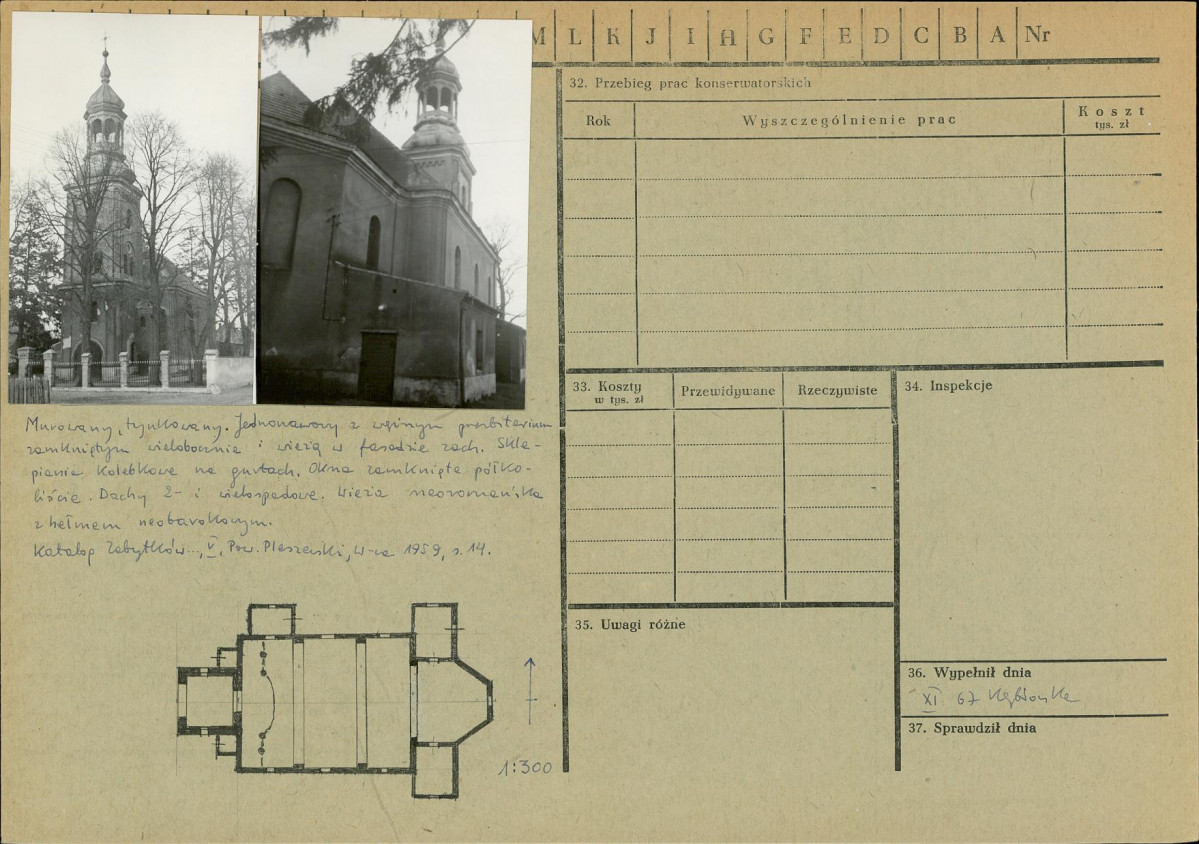 M L K J I H G F E D C B A Nr
32. Przebieg prac konserwatorskich
Rok Wyszczególnienie prac Koszt
tys. zł
33. Koszty
w tys. zł
Przewidywane Rzeczywiste
34. Inspekcje
35. Uwagi różne
36. Wypełnił dnia
XI 67
37. Sprawdził dnia
Murowany, tynkowany. Jednonawowy z węższym prezbiterium
zamkniętym wielobocznie i wieżą w fasadzie zach. Skle-
pienie kolebkowe na gurtach. Okna zamknięte półko-
liście. Dachy 2- i wielospadowe. Wieża neoromańska
z hełmem neobarokowym.
Katalog Zabytków..., V, Pow. Pleszewski, W-wa 1959, s. 14.
1:300